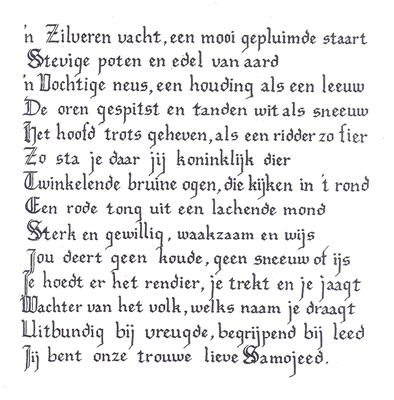 'n Zilveren vacht, een mooi gepluimde staart
Stevige poten en edel van aard
'n Vochtige neus, een houding als een leeuw
De oren gespitst en tanden wit als sneeuw
Het hoofd trots geheven, als een ridder zo fier
Zo sta je daar jij koninklijk dier
Twinkelende bruine ogen, die kijken in 't rond
Een rode tong uit een lachende mond
Sterk en gewillig, waakzaam en wijs
Jou deert geen koude, geen sneeuw of ijs
Je hoedt er het rendier, je trekt en je jaagt
Wachter van het volk, welks naam je draagt
Uitbundig bij vreugde, begrijpend bij leed
Jij bent onze trouwe lieve Samojeed.